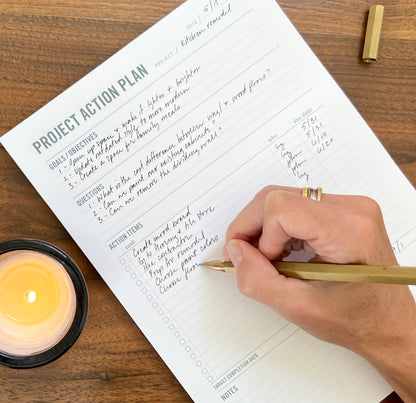 PROJECT ACTION PLAN
DATE / 5/15
PROJECT / Kitchen remodel
GOALS/OBJECTIVES
1 - Open up space & make it lighter & brighter
2 - Update outdated style to more modern
3 - Create a space for family meals
QUESTIONS
1 - What is the cost difference between vinyl & wood floors?
2 - Can we paint our existing cabinets?
3 - Can we remove the dividing wall?
ACTION ITEMS
who
due date
Create mood board
5/31
Go to Home & tile store
5/31
Hire contractor
6/10
Prep for remodel
6/20
Choose paint colors
Choose floor
TARGET COMPLETION DATE
NOTES